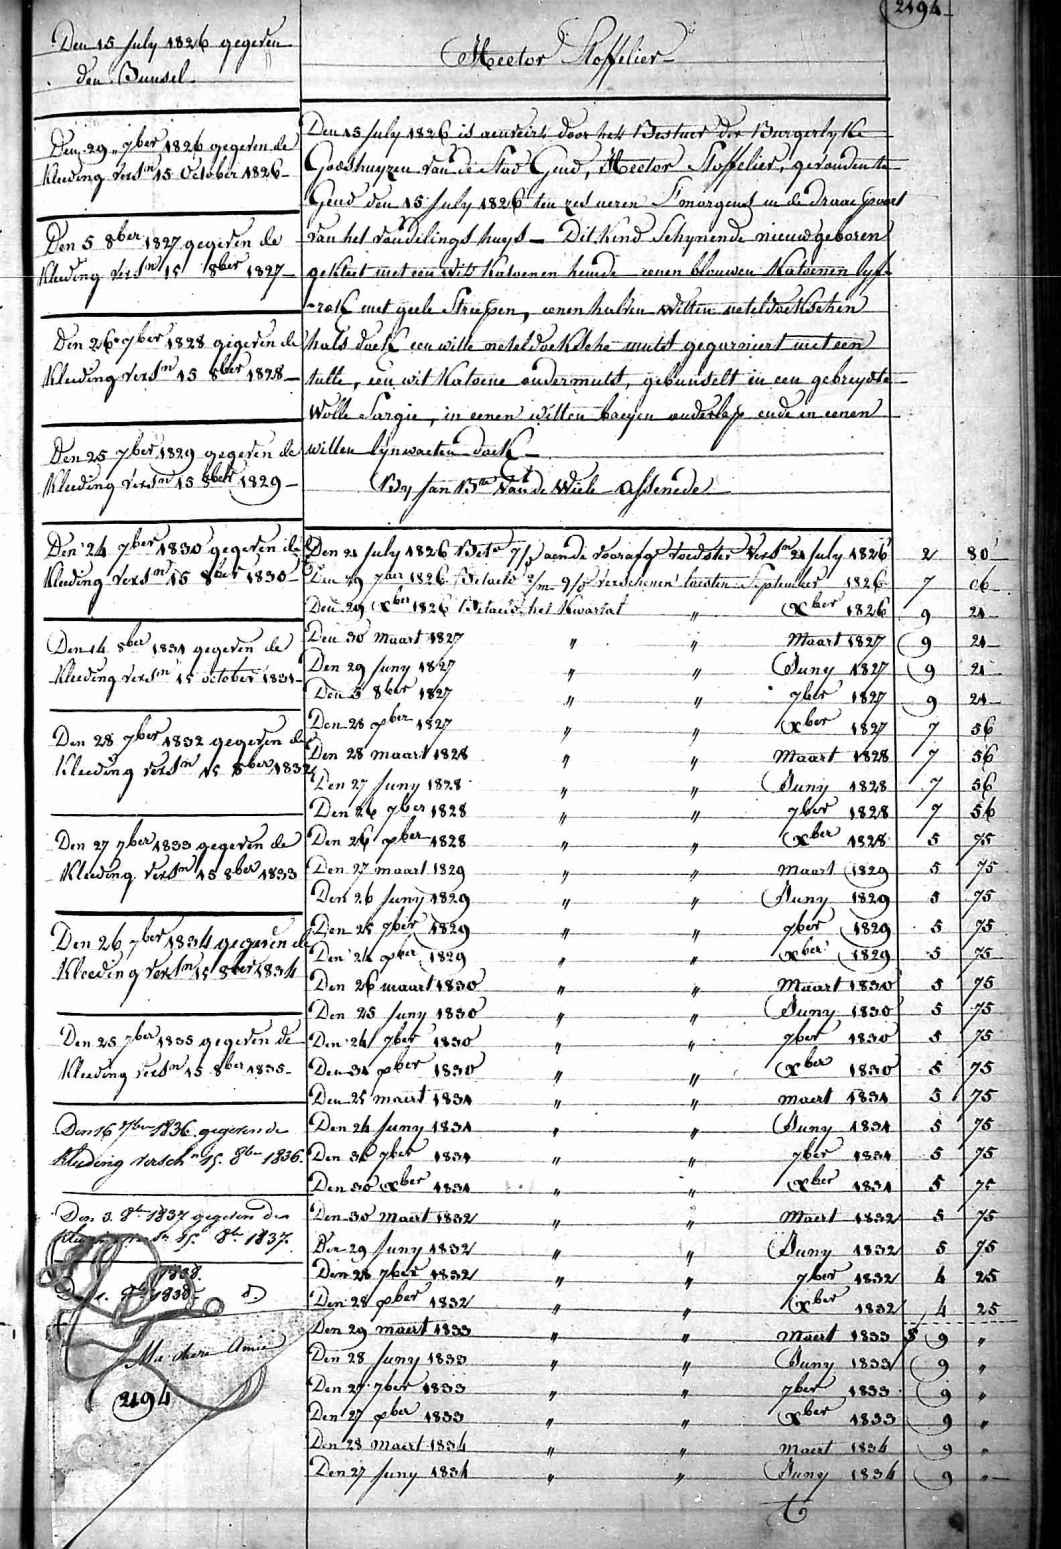 2194
Den 15 july 1826 gegeven
den Bunsel
Den 29 7ber 1826 gegeven de
kleeding versn 15 October 1826
Den 5 8ber 1827 gegeven de
kleeding versn 15 8ber 1827
Den 26 7ber 1828 gegeven de
kleeding versn 15 8ber 1828
Den 25 7ber 1829 gegeven de
kleeding versn 15 8ber 1829
Den 24 7ber 1830 gegeven de
kleeding versn 15 8ber 1830
Den 14 8ber 1831 gegeven de
kleeding versn 15 october 1831
Den 28 7ber 1832 gegeven de
kleeding versn 15 8ber 1832
Den 27 7ber 1833 gegeven de
kleeding versn 15 8ber 1833
Den 26 7ber 1834 gegeven de
kleeding versn 15 8ber 1834
Den 25 7ber 1835 gegeven de
kleeding versn 15 8ber 1835
Den 16 7ber 1836 gegeven de
kleeding versch n 15. 8br 1836.
Den 3. 8br 1837 gegeven den
15. 8br 1837.
1838.
1838
Ma chere Amie
2194
Hector Stoffelier
Den 15 july 1826 is aenveirt door het Bestuer der Burgerlyke
Godshuyzen van de Stad Gend, Hector Stoffelier, gevonden te
Gend den 15 july 1826 ten zes ueren S'morgens in de draae
van het vondelings huys - Dit Kind Schynende nieuw geboren
gekleet met een wit Katoenen hemde eenen blouwen Katoenen lyf-
-rok met geele Streepen, eenen halven witten neteldoekschen
hals doek een witte neteldoeksche muts gegarniert met een
tulle, een wit Katoene ondermuts, gebunselt in een gebreyde
Wolle Sargie, in eenen witten baeyen onderlap ende in eenen
witten lynwaeten doek
By Jan Bte Van de Wiele Assenede
Den 21 july 1826 aende voorafg voedster versn 21 july 1826 2 80
Den 29 7ber 1826 Betaelt verschenen September 1826 7 06
Den 29 Xber 1826 Betaelt het Kwartal " Xber 1826 9 21
Den 30 Maart 1827 " " Maart 1827 9 21
Den 29 juny 1827 " " Juny 1827 9 21
Den 5 8ber 1827 " " 7ber 1827 9 21
Den 28 xber 1827 " " Xber 1827 7 56
Den 28 maart 1828 " " Maart 1828 7 56
Den 27 juny 1828 " " Juny 1828 7 56
Den 26 7ber 1828 " " 7ber 1828 7 56
Den 26 xber 1828 " " Xber 1828 5 75
Den 27 maart 1829 " " Maart 1829 5 75
Den 26 juny 1829 " " Juny 1829 5 75
Den 25 7ber 1829 " " 7ber 1829 5 75
Den 24 xber 1829 " " Xber 1829 5 75
Den 26 maart 1830 " " Maart 1830 5 75
Den 25 juny 1830 " " Juny 1830 5 75
Den 24 7ber 1830 " " 7ber 1830 5 75
Den 31 xber 1830 " " Xber 1830 5 75
Den 25 maert 1831 " " maert 1831 5 75
Den 24 juny 1831 " " Juny 1831 5 75
Den 30 7ber 1831 " " 7ber 1831 5 75
Den 30 Xber 1831 " " Xber 1831 5 75
Den 30 maert 1832 " " Maert 1832 5 75
Den 29 juny 1832 " " Juny 1832 5 75
Den 28 7ber 1832 " " 7ber 1832 4 25
Den 28 xber 1832 " " Xber 1832 4 25
Den 29 maert 1833 " " Maert 1833 9 "
Den 28 juny 1833 " " Juny 1833 9 "
Den 27 7ber 1833 " " 7ber 1833 9 "
Den 27 xber 1833 " " Xber 1833 9 "
Den 28 maert 1834 " " maert 1834 9 "
Den 27 juny 1834 " " Juny 1834 9 "